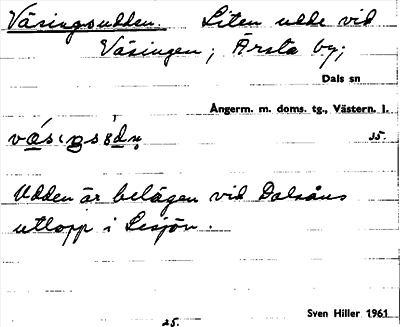 Väsingsudden. Liten udde vid
Väsingen; Ärsta by;
Dals sn
Ångerm. m. doms. tg., Västern. l.
35.
Udden är belägen vid Dalsåns
utlopp i Lesjön.
Sven Hiller 1961
25.